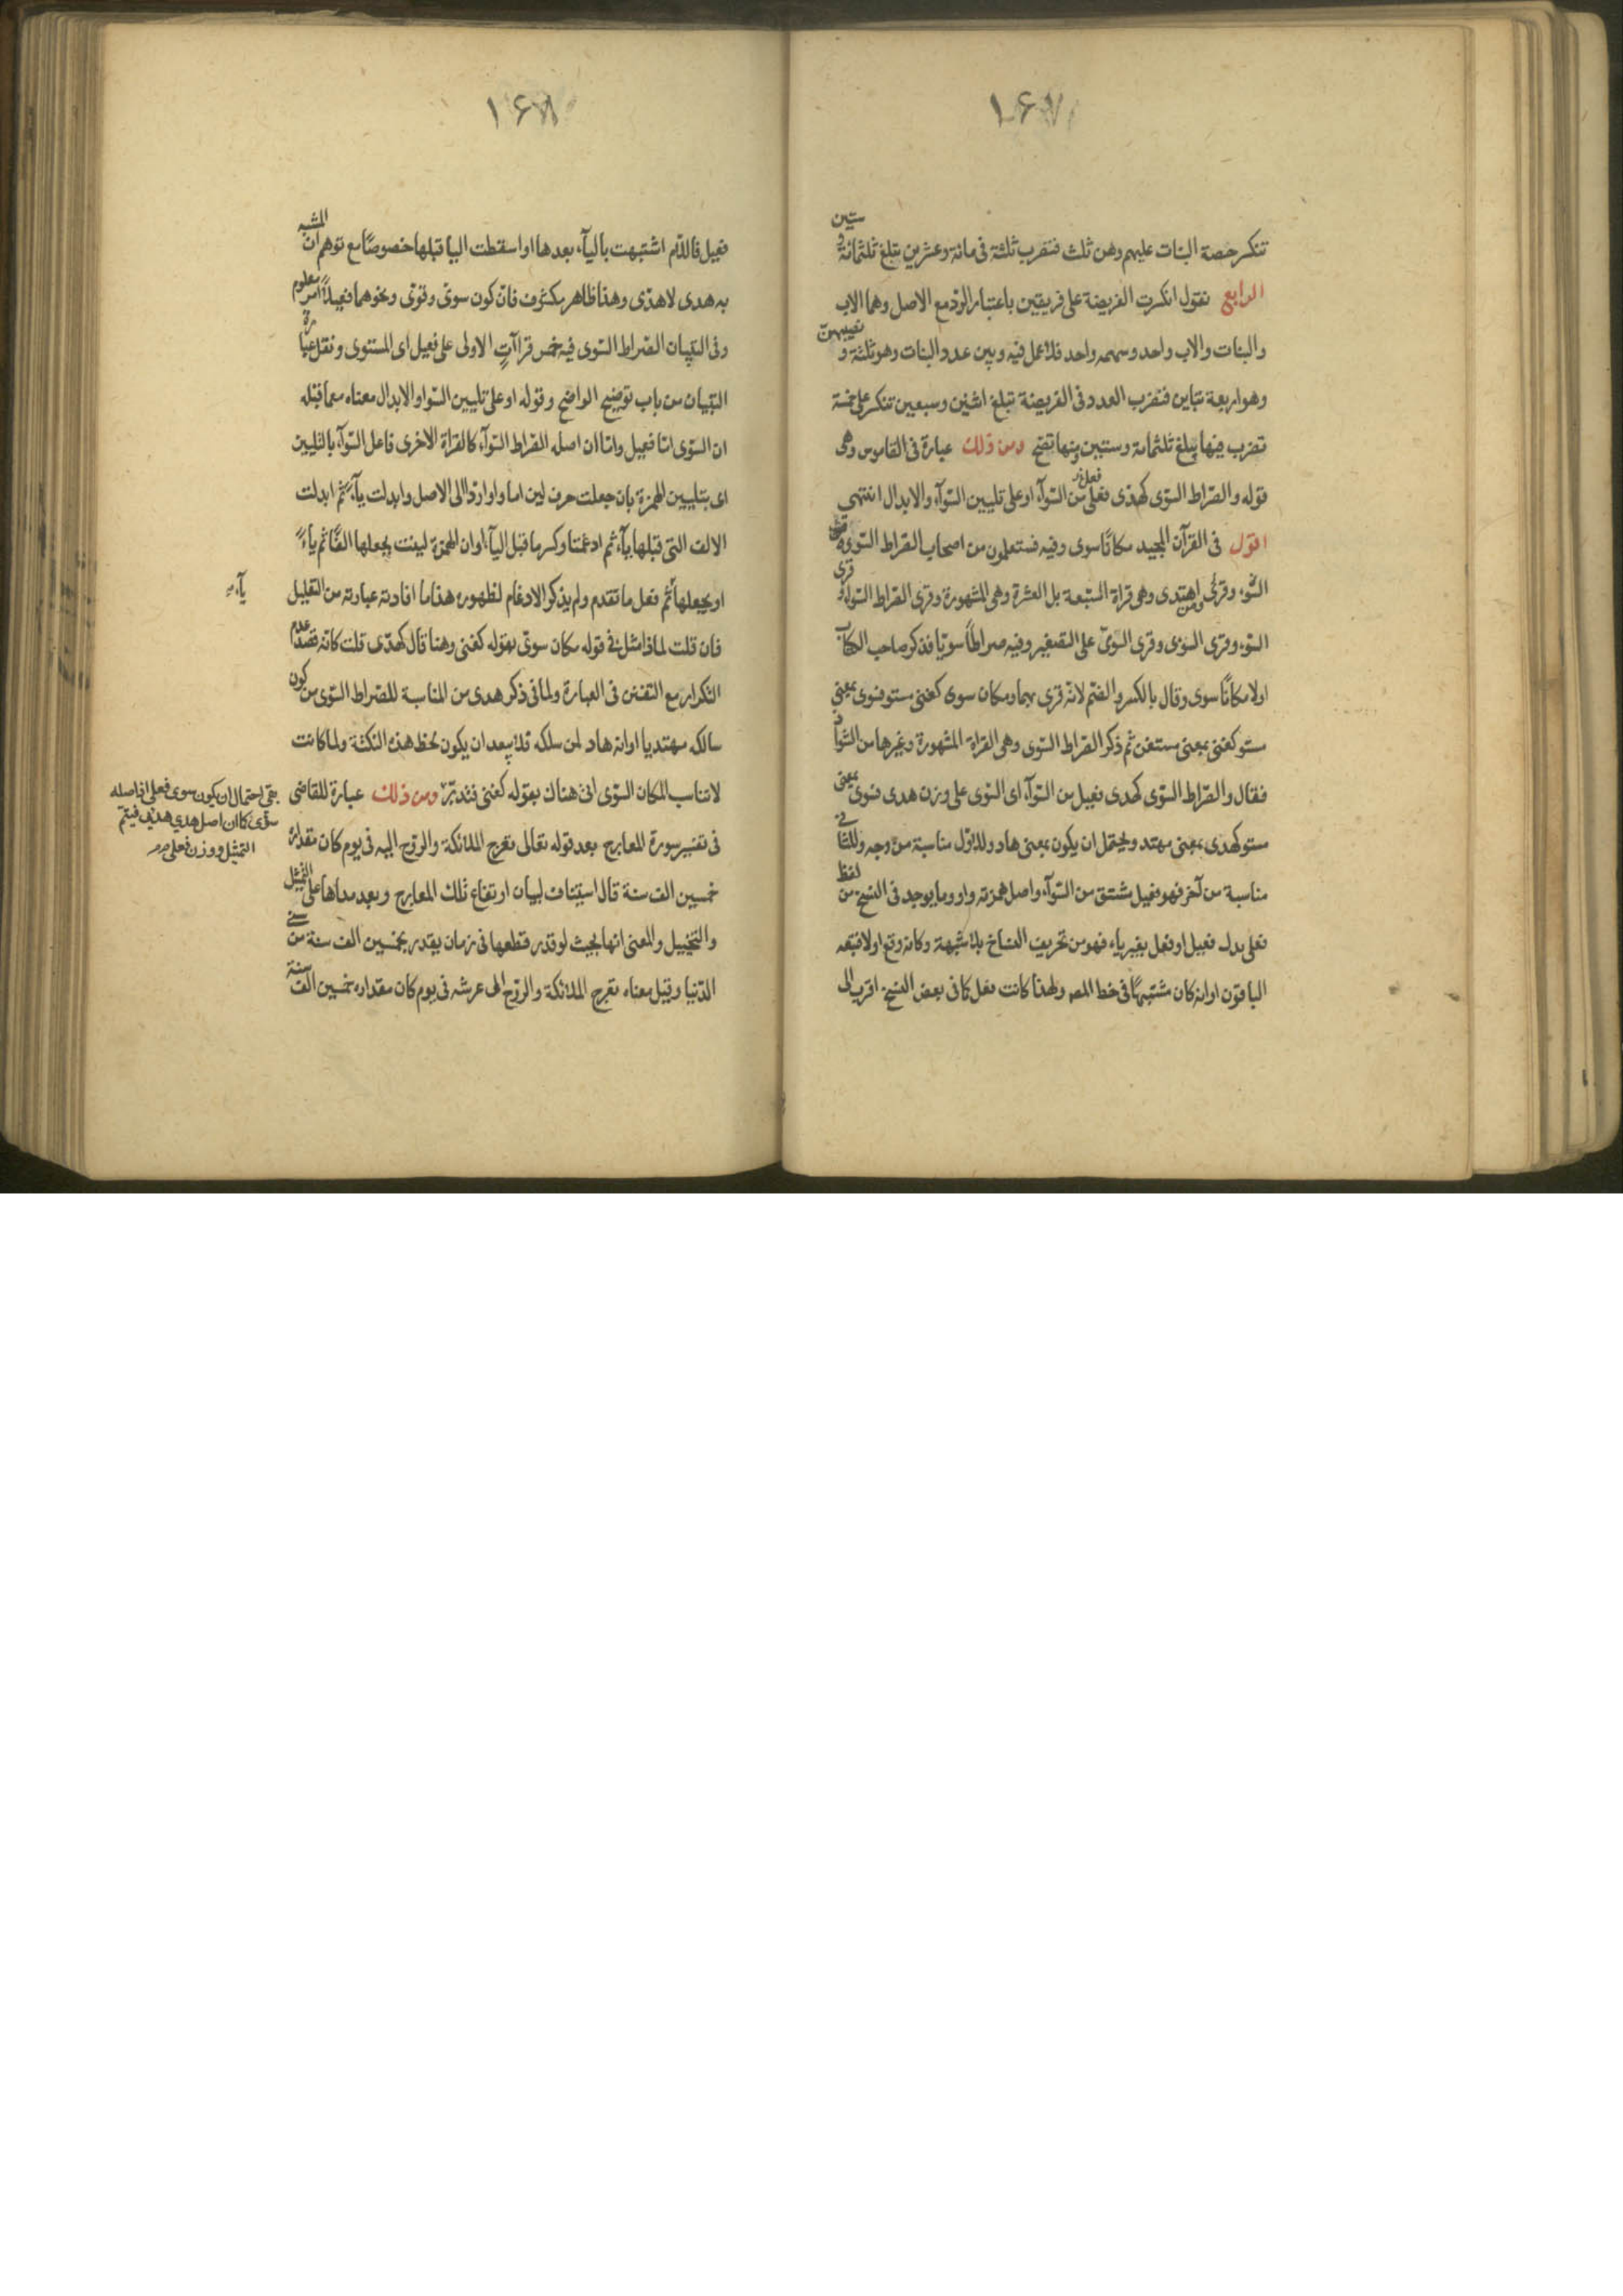 ۱۶۷
تنكسر حصة البنات عليهم وهن ثلث فتضرب ثلثة في مائة وعشرين تبلغ ثلثمائة و ستين
الرابع نقول انكسرت الفريضة على فريقين باعتبار الرد مع الاصل وهما الاب
والبنات والاب واحد وسهمه واحد فلا عمل فيه وبين عدد البنات وهو ثلثة و نصيبهن
وهو اربعة تباين فتضرب العدد في الفريضة تبلغ اثنين وسبعين تنكسر على خمسة
تضرب فيها يبلغ ثلثمائة وستين ومنها تصح ومن ذلك عبارة في القاموس وهي
قوله والصراط السوى كهدى فعل من السوآء او على تليين السوآء والابدال انتهى
اقول في القرآن المجيد مكانًا سوى وفيه فستعلمون من اصحاب الصراط السوى
السو، وقرئ ومن اهتدى وهي قراة السبعة بل العشرة وهي المشهورة وقرى الصراط السوآء و قرى
السوء وقرى السوى وقرى السوىّ على التصغير وفيه صراطًا سويّا فذكر صاحب الكتاب
اولا مكانًا سوى وقال بالكسر والضم لانه قرى بهما ومكان سوى كغنى مستو فسوى بمعنى
مستو كغنى بمعنى مستغن ثم ذكر الصراط السوى وهي القراة المشهورة وغيرها من الشواذ
فقال والصراط السوى كهدى فعيل من السوآء اى السوى على وزن هدى فسوى بمعنى
مستو كهدى بمعنى مهتد ويحتمل ان يكون بمعنى هاد وللاول مناسبة من وجه وللثاني
مناسبة من آخر فهو فعيل مشتق من السوآء واصل همزته واو وما يوجد في النسخ من لفظ
فعلى بدل فعيل او فعل بغير ياء فهو من تحريف النساخ بلا شبهة وكانه وقع اولا فتبعه
الباقون او انه كان مشتبهًا في خط المص ولهذا كانت فعل كما في بعض النسخ اقرب الى
۱۶۸
فعيل فاللام اشتبهت بالياء، بعدها او اسقطت اليا قبلها خصوصًا مع توهم ان المشبه
به هدى لا هدّى وهذا ظاهر مكشوف فان كون سوىّ وقوىّ ونحوهما فعيلاً امر معلوم
وفي التبيان الصراط السوى فيه خمس قراآتٍ الاولى على فعيل اى المستوى ونقل عبارة
التبيان من باب توضيح الواضح وقوله او على تليين السوا والابدال معناه مع ما قبله
ان السوى اما فعيل واما ان اصله الصراط السوآء كالقراة الاخرى فاعل السوآء بالتليين
اى بتليين الهمزة بان جعلت حرف لين اما واوا ردا الى الاصل وابدلت يآء ثم ابدلت
الالف التي قبلها يآء ثم ادغمتا وكسر ما قبل اليآء او ان الهمزة لينت بجعلها الفًا ثم ياءً
او بجعلها ثم فعل ما تقدم ولم يذكر الادغام لظهوره هذا ما افادته عبارته من التعليل
يآء
فان قلت لماذا مثل في قوله مكان سوىّ بقوله كغنى وهنا قال كهدّى قلت كانه قصد عدم
التكرار مع التفنن في العبارة ولما في ذكر هدى من المناسبة للصراط السوى من كون
سالكه مهتديا او انه هاد لمن سلكه فلا يبعد ان يكون لحظ هذه النكتة ولما كانت
لا تناسب المكان السوى اتى هناك بقوله كغنى فتدبّر ومن ذلك عبارة للقاضى
بقى احتمال ان يكون سوى فعلى اذ اصله
سوّى كما ان اصل هدى هدى فيتم
التمثيل ووزن فعلى
في تفسير سورة المعارج بعد قوله تعالى تعرج الملائكة والروح اليه في يوم كان مقداره
خمسين الف سنة قال استيناف لبيان ارتفاع تلك المعارج وبعد مداها على التمثيل
والتخييل والمعنى انها بحيث لو قدر قطعها في زمان يقدر بخمسين الف سنة من سني
الدنيا وقيل معناه تعرج الملائكة والروح الى عرشه في يوم كان مقداره خمسين الف سنة